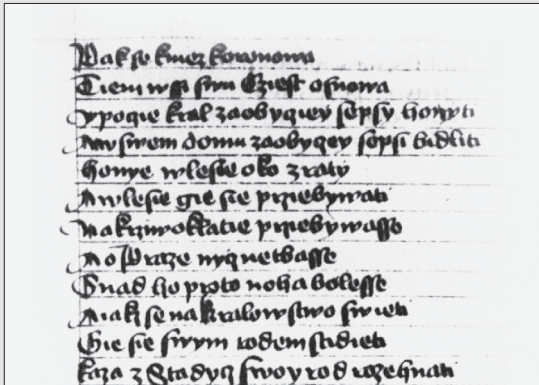 Pak se kniez korunowa
Tiem wssi swu Cziest osnowa
ypogie kral zaobyczey sepsy honyti
Aw swem domu zaobyczey sepsi bidliti
honye wlesie oko zraty
Awlesie gie sie prziebywati
Nakrziwoklatie prziebywasse
Ao Praze nycznetbasse
Snad ho proto noha bolesse
Aiak se nakralowstwo swieti
Gie sie swym rodem stidieti
kaza z Stadycz swoy rod rozehnati